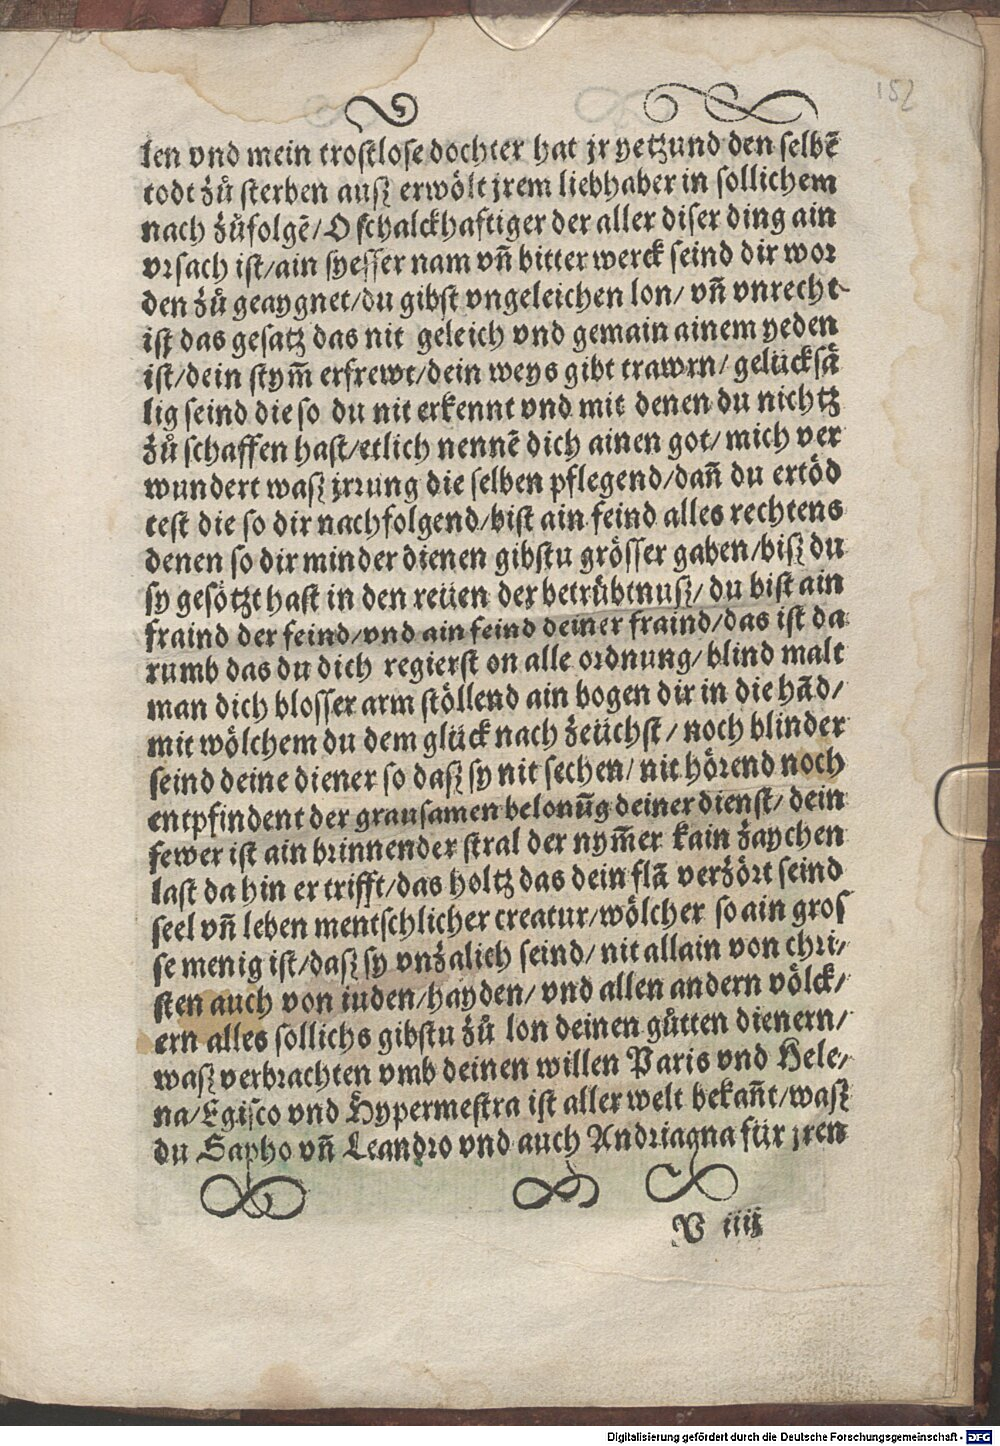 152
len vnd mein trostlose dochter hat jr yetzund den selbē
todt zů sterben ausz erwölt jrem liebhaber in sollichem
nach zůfolgē/O schalckhaftiger der aller diser ding ain
vrsach ist/ain syesser nam vn̄ bitter werck seind dir wor
den zů geaygnet/du gibst vngeleichen lon/ vn̄ vnrecht
ist das gesatz das nit geleich vnd gemain ainem yeden
ist/dein stym̄ erfrewt/dein weys gibt trawrn/ gelücksā
lig seind die so du nit erkennt vnd mit denen du nichtz
zů schaffen hast/etlich nennē dich ainen got/ mich ver
wundert wasz jrrung die selben pflegend/dan̄ du ertöd
test die so dir nachfolgend/bist ain feind alles rechtens
denen so dir minder dienen gibstu grösser gaben/bisz du
sy gesötzt hast in den reüen der betrübtnusz/ du bist ain
fraind der feind/vnd ain feind deiner fraind/das ist da
rumb das du dich regierst on alle ordnung/ blind malt
man dich blosser arm stöllend ain bogen dir in die hād/
mit wölchem du dem glück nach zeüchst/ noch blinder
seind deine diener so dasz sy nit sechen/ nit hörend noch
entpfindent der grausamen belonūg deiner dienst/ dein
fewer ist ain brinnender stral der nym̄er kain zaychen
last da hin er trifft/das holtz das dein flā verzört seind
seel vn̄ leben mentschlicher creatur/wölcher so ain gros
se menig ist/dasz sy vnzalich seind/ nit allain von chri/
sten auch von iuden/hayden/ vnd allen andern völck/
ern alles sollichs gibstu zů lon deinen gůtten dienern/
wasz verbrachten vmb deinen willen Paris vnd Hele/
na/Egisco vnd Hypermestra ist aller welt bekan̄t/wasz
du Sapho vn̄ Leandro vnd auch Andriagna für jren
V iiij
Digitalisierung gefördert durch die Deutsche Forschungsgemeinschaft - DFG